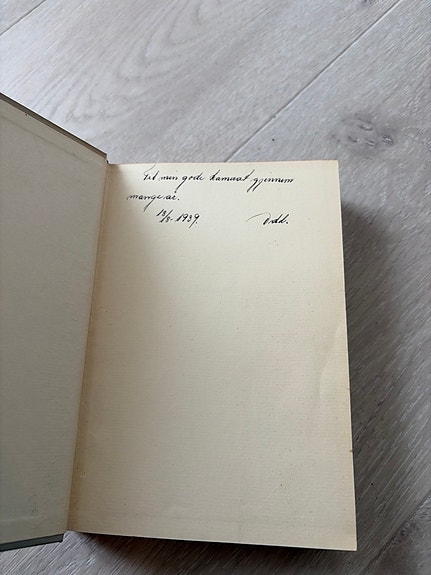 Til min gode kamerat gjennem
mange år.
13/8-1939. Odd.